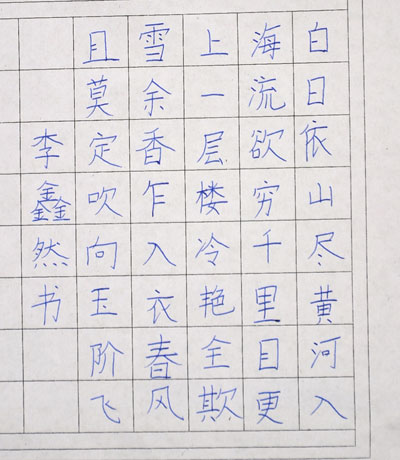 白日依山尽黄河入
海流欲穷千里目更
上一层楼冷艳全欺
雪余香乍入衣春风
且莫定吹向玉阶飞
李鑫然书